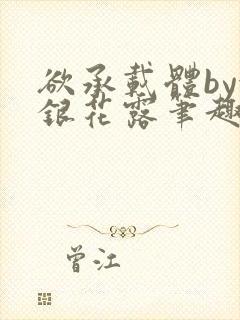 欲承載體by
銀花露筆趣
曾江